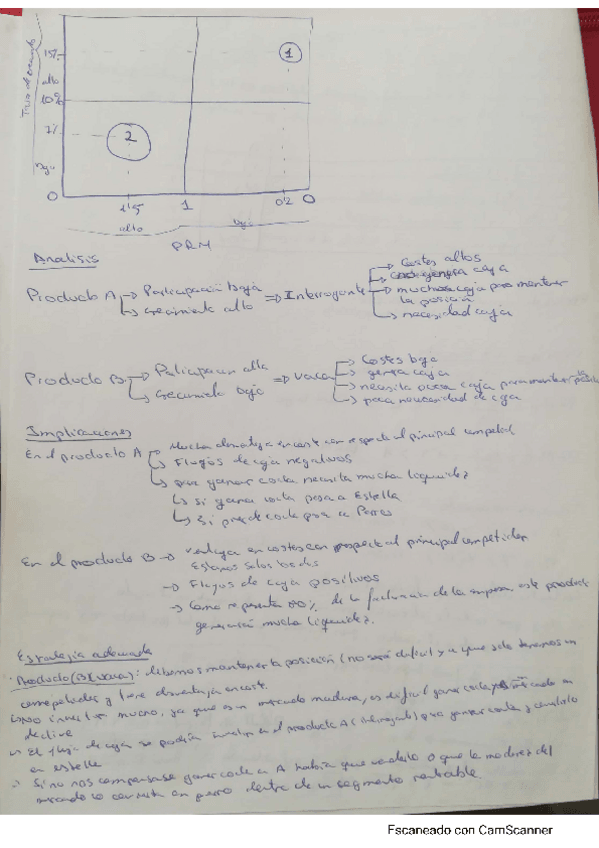 Tasa de crecimiento
15%
alto
10%
7%
bajo
0
1
2
1'5
1
0'2
0
alto
bajo
PRM
Analisis
Producto A → Participación baja
→ crecimiento alto
⇒ Interrogante
→ Costes altos
genera caja
→ mucha caja para mantener
la posición
→ necesidad caja
Producto B → Participacion alta
→ Crecimiento bajo
⇒ Vaca
→ Costes bajo
→ genera caja
→ necesita poca caja para mantener la
→ poca necesidad de caja
Implicaciones
En el producto A
→ Mucha desventaja en coste con respecto al principal
→ Flujos de caja negativos
→ para ganar cuota necesita mucha liquidez
→ Si gana cuota pasa a Estrella
→ Si pierde cuota pasa a Perro
En el producto B → ventaja en costes con respecto al principal competidor
Estamos
→ Flujos de caja positivos
→ Como representa de la facturación de la empresa, este producto
mucha liquidez.
Estrategia adecuada
Producto B (vaca): debemos mantener la posición (no será difícil ya que solo tenemos un
competidor y tiene desventaja en coste.
mucho, ya que es un mercado maduro, es difícil ganar cuota
declive
El flujo de caja se podría invertir en el producto A (interrogante) para ganar cuota y
en estrella
Si no nos compensase ganar cuota en A habría que venderlo o que la madurez del
mercado lo convierta en perro dentro de un segmento rentable.
Escaneado con CamScanner